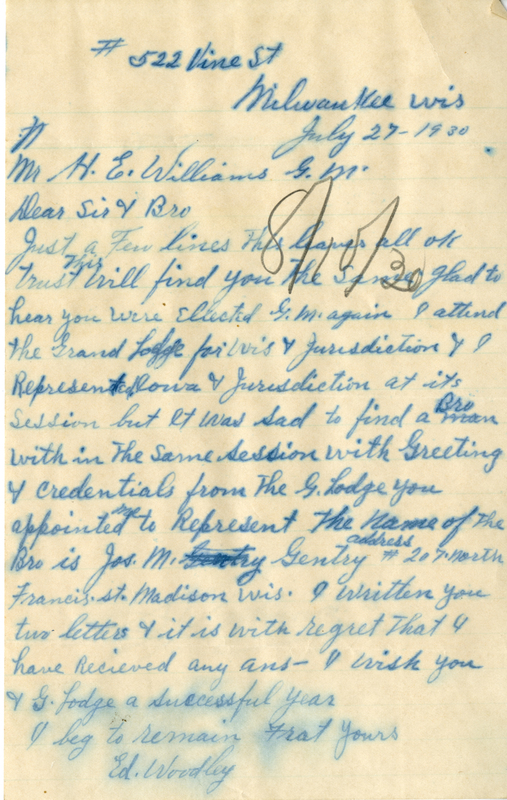 # 522 Vine St
Milwaukee Wis
July 27-1930
Mr H. E. Williams G. M.
Dear Sir & Bro
Just a Few lines This leaves all ok
8/10/30
trust This Will find you the Same glad to
hear you Were Elected G. M. again I attend
the Grand Lodge for Wis & Jurisdiction & I
Represented Iowa & Jurisdiction at its
Session but it Was Sad to find a Bro man
with in The Same Session with Greeting
& credentials from The G. Lodge you
appointed me to Represent The Name of The
Bro is Jos. M. Gentry Gentry address # 207. North
Francis. st. Madison Wis. I written you
two letters & it is with regret That I
have Recieved any ans- I wish you
& G. Lodge a successful year
I beg to remain Frat Yours
Ed. Woodley